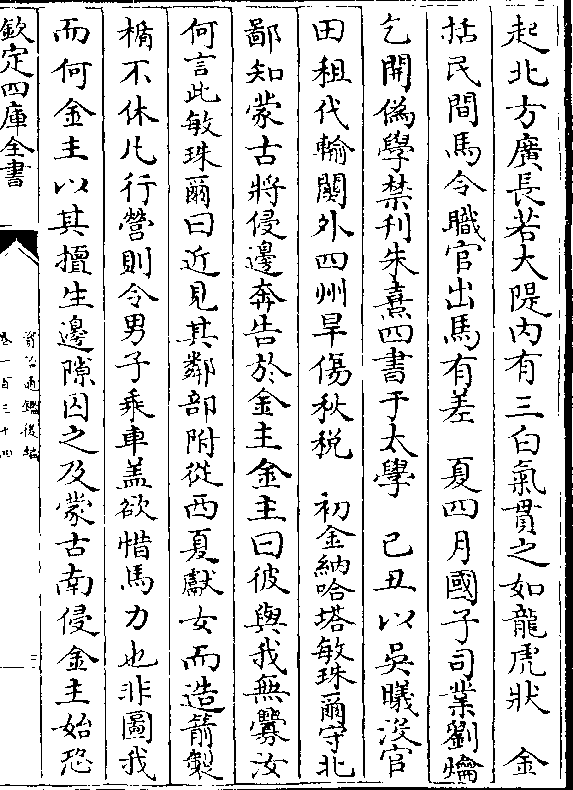 起北方廣長若大隄内有三白氣貫之如龍虎狀　金
括民間馬令職官出馬有差　夏四月國子司業劉爚
乞開偽學禁刊朱熹四書于太學　己丑以吳曦沒官
田租代輸關外四州旱傷秋税　初金納哈塔敏珠爾守北
鄙知蒙古將侵邊奔告於金主金主曰彼與我無釁汝
何言此敏珠爾曰近見其鄰部附從西夏獻女而造箭製
楯不休凡行營則令男子乘車盖欲惜馬力也非圖我
而何金主以其擅生邊隙囚之及蒙古南侵金主始恐
欽定四庫全書
資治通鑑後編
卷一百三十四